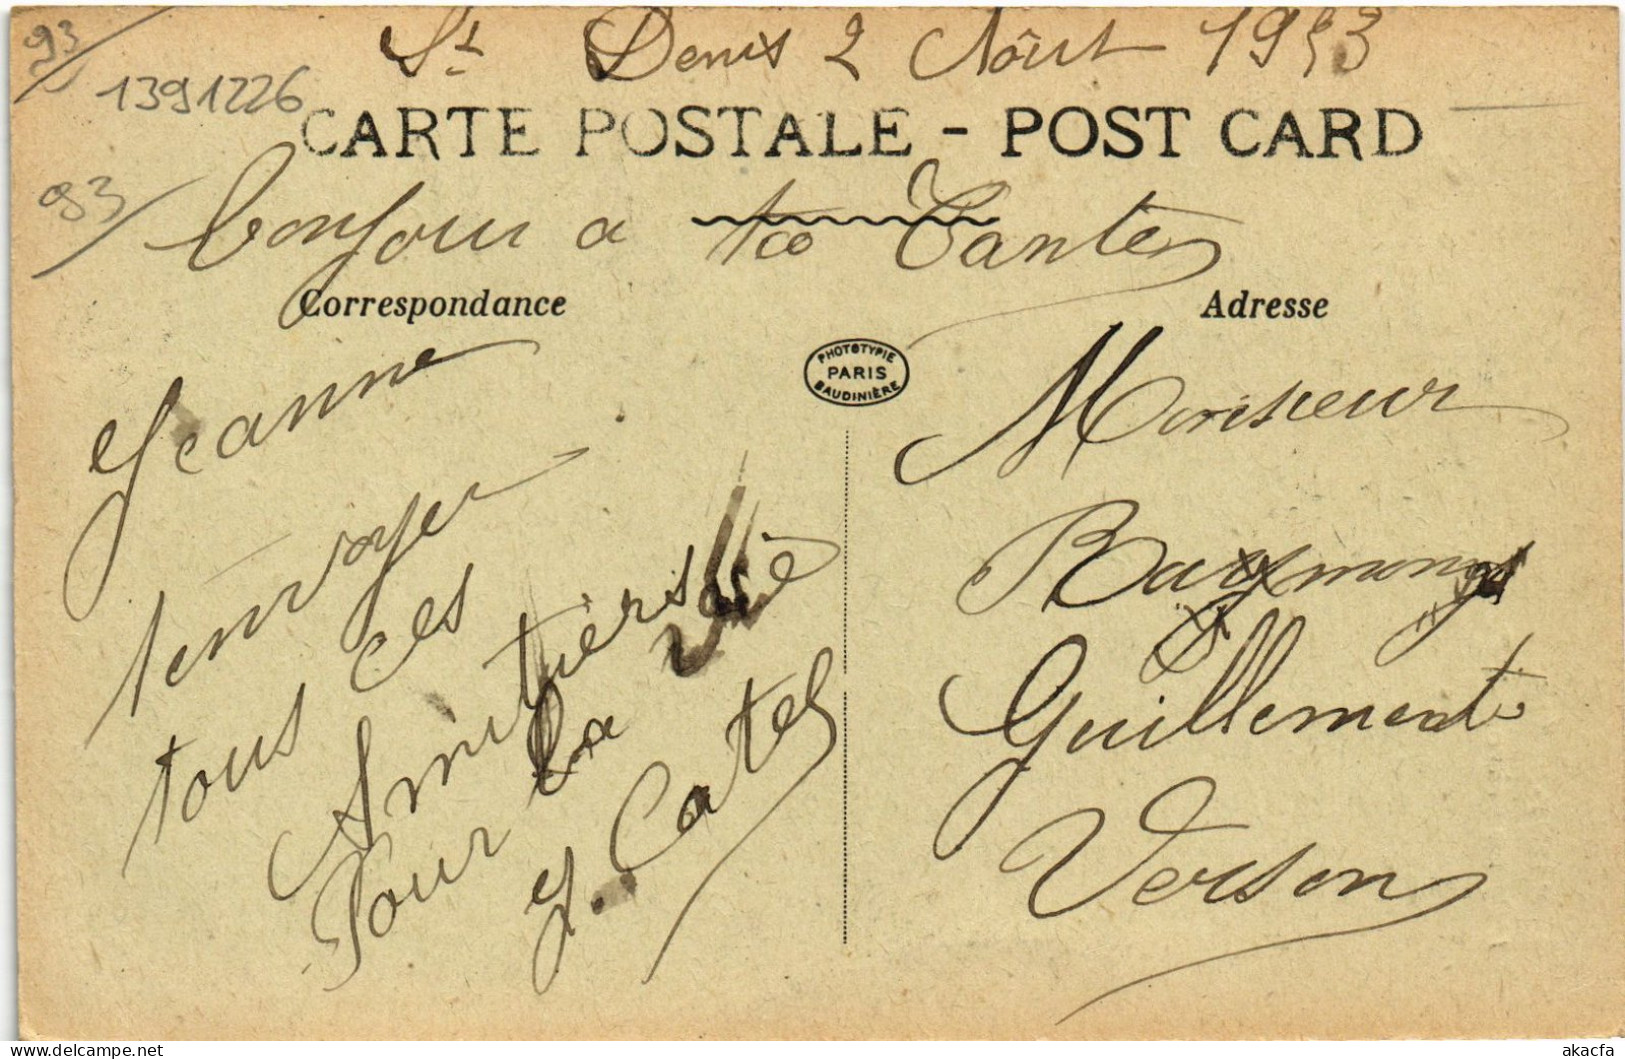 93
St Denis 2 Aôut 1933
1391226
CARTE POSTALE - POST CARD
93
bonjour a ta Tante
Correspondance
Adresse
PHOTOTYPIE
PARIS
BAUDINIÈRE
Jeanne
tenvoyer
tous ces
Amitiers
Pour la vie
J. Catel
Monsieur
Raymond
Guillement
Verson
akacfa